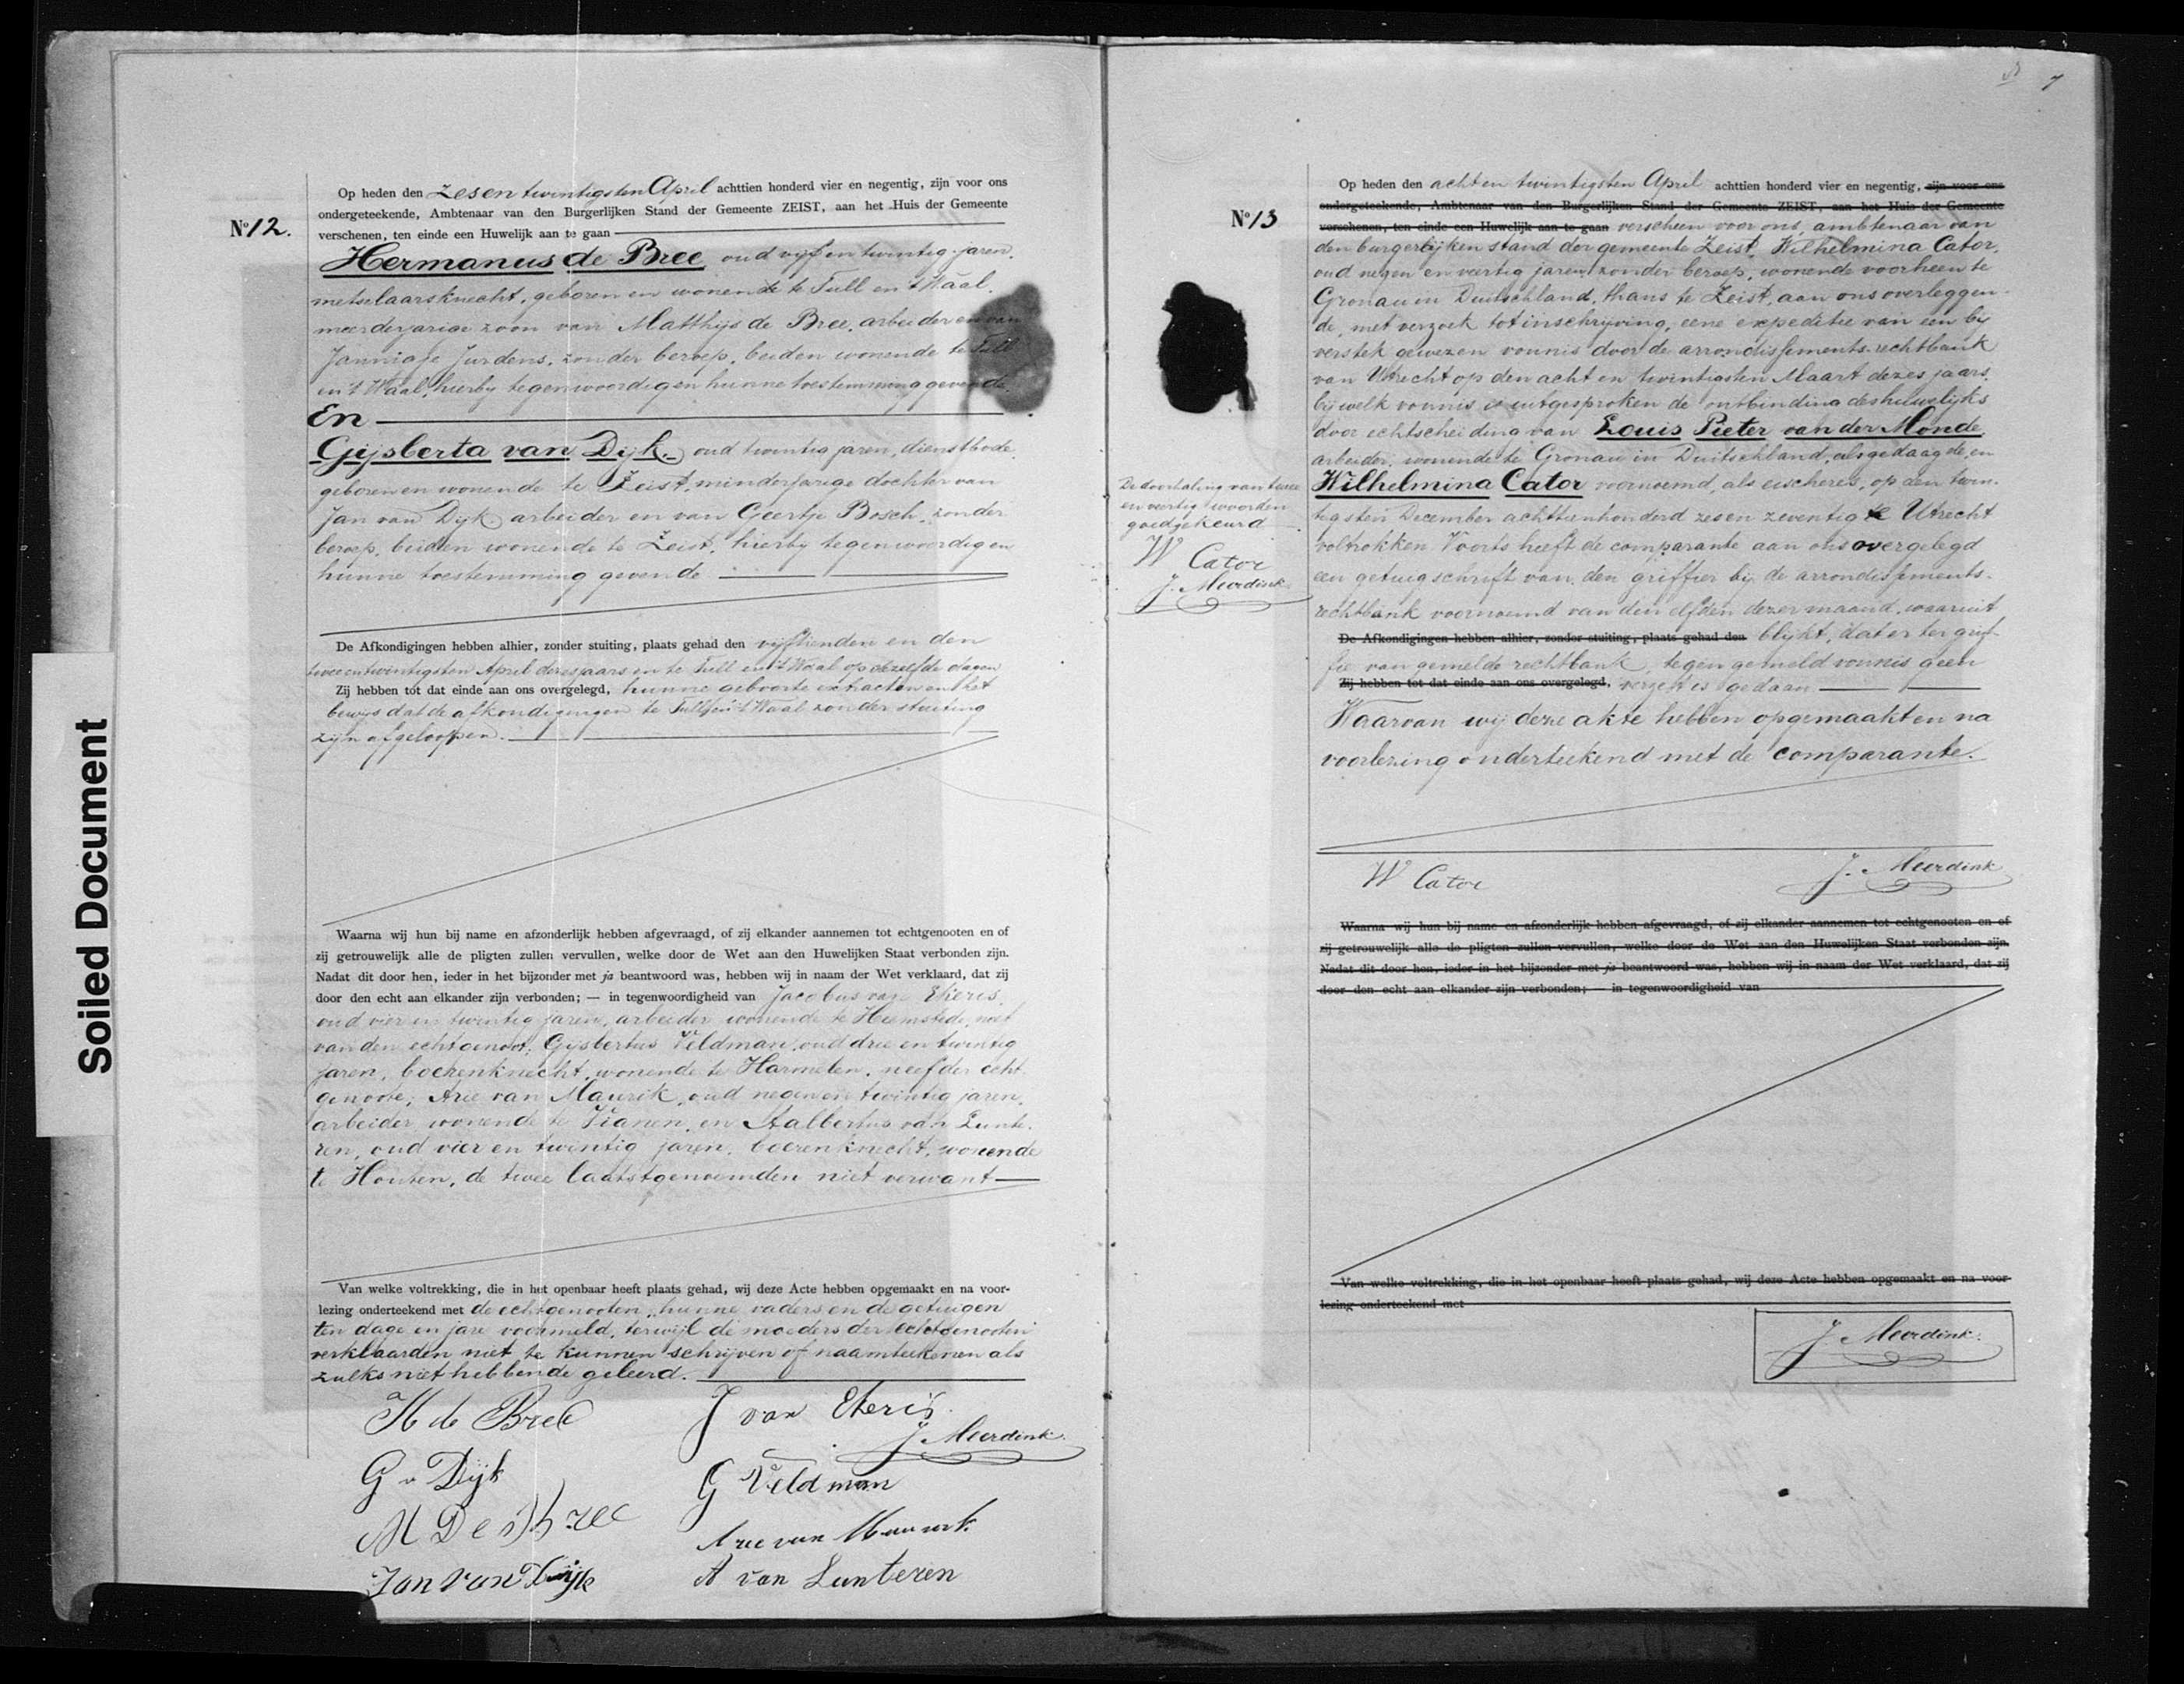 Soiled Document
No 12.
Op heden den zesentwintigsten April achttien honderd vier en negentig, zijn voor ons
ondergeteekende, Ambtenaar van den Burgerlijken Stand der Gemeente ZEIST, aan het Huis der Gemeente
verschenen, ten einde een Huwelijk aan te gaan
Hermanus de Bree, oud vijf en twintig jaren,
metselaarsknecht, geboren en wonende te Tull en 't Waal,
meerderjarige zoon van Matthijs de Bree, arbeider en van
Jannigje Jurdens, zonder beroep, beiden wonende te Tull
en 't Waal, hierbij tegenwoordig en hunne toestemming gevende.
En
Gijsberta van Dijk, oud twintig jaren, dienstbode,
geboren en wonende te Zeist, minderjarige dochter van
Jan van Dijk arbeider en van Geertje Bosch, zonder
beroep, beiden wonende te Zeist, hierbij tegenwoordig en
hunne toestemming gevende
De Afkondigingen hebben alhier, zonder stuiting, plaats gehad den vijftienden en den
twee en twintigsten April dezes jaars en te Tull en 't Waal op dezelfde dagen
Zij hebben tot dat einde aan ons overgelegd, hunne geboorte extracten en het
bewijs dat de afkondigingen te Tull en 't Waal zonder stuiting
zijn afgeloopen.
Waarna wij hun bij name en afzonderlijk hebben afgevraagd, of zij elkander aannemen tot echtgenooten en of
zij getrouwelijk alle de pligten zullen vervullen, welke door de Wet aan den Huwelijken Staat verbonden zijn.
Nadat dit door hen, ieder in het bijzonder met ja beantwoord was, hebben wij in naam der Wet verklaard, dat zij
door den echt aan elkander zijn verbonden; — in tegenwoordigheid van Jacobus van Ekeris,
oud vier en twintig jaren, arbeider wonende te Heemstede, neef
van den echtgenoot; Gijsbertus Veldman, oud drie en twintig
jaren, boerenknecht, wonende te Harmelen, neef der echt
genoote; Arie van Maurik, oud negen en twintig jaren,
arbeider, wonende te Vianen, en Aalbertus van Lunte-
ren, oud vier en twintig jaren, boerenknecht, wonende
te Houten, de twee laatstgenoemden niet verwant
Van welke voltrekking, die in het openbaar heeft plaats gehad, wij deze Acte hebben opgemaakt en na voor-
lezing onderteekend met de echtgenooten, hunne vaders en de getuigen
ten dage en jare voormeld, terwijl de moeders der echtgenooten
verklaarden niet te kunnen schrijven of naamteekenen als
zulks niet hebbende geleerd.
H de Bree
J van Ekeris
J. Meerdink
G v Dijk
G Veldman
M De Bree
Arie van Maurik
Jan van Dijk
A van Lunteren
7
No 13
Op heden den acht en twintigsten April achttien honderd vier en negentig, zijn voor ons
ondergeteekende, Ambtenaar van den Burgerlijken Stand der Gemeente ZEIST, aan het Huis der Gemeente
verschenen, ten einde een Huwelijk aan te gaan verscheen voor ons, ambtenaar van
den burgerlijken stand der gemeente Zeist, Wilhelmina Cator,
oud negen en veertig jaren, zonder beroep, wonende voorheen te
Gronau in Duitschland, thans te Zeist, aan ons overleggen-
de, met verzoek tot inschrijving, eene expeditie van een bij
verstek gewezen vonnis door de arrondissements-rechtbank
van Utrecht op den acht en twintigsten Maart dezes jaars,
bij welk vonnis is uitgesproken de ontbinding des huwelijks
door echtscheiding van Louis Pieter van der Monde
arbeider, wonende te Gronau in Duitschland, als gedaagde, en
Wilhelmina Cator voornoemd, als eischeres, op den twin-
tigsten December achttienhonderd zes en zeventig te Utrecht
voltrokken. Voorts heeft de comparante aan ons overgelegd
een getuigschrift van den griffier bij de arrondissements-
rechtbank voornoemd van den elfden dezer maand, waaruit
De Afkondigingen hebben alhier, zonder stuiting, plaats gehad den blijkt, dat er ter grif-
fie van gemelde rechtbank, tegen gemeld vonnis geen
Zij hebben tot dat einde aan ons overgelegd, verzet is gedaan
Waarvan wij deze akte hebben opgemaakt en na
voorlezing onderteekend met de comparante.
De doorhaling van twee
en veertig woorden
goedgekeurd
W Cator
J. Meerdink
W Cator
J. Meerdink
Waarna wij hun bij name en afzonderlijk hebben afgevraagd, of zij elkander aannemen tot echtgenooten en of
zij getrouwelijk alle de pligten zullen vervullen, welke door de Wet aan den Huwelijken Staat verbonden zijn.
Nadat dit door hen, ieder in het bijzonder met ja beantwoord was, hebben wij in naam der Wet verklaard, dat zij
door den echt aan elkander zijn verbonden; — in tegenwoordigheid van
Van welke voltrekking, die in het openbaar heeft plaats gehad, wij deze Acte hebben opgemaakt en na voor-
lezing onderteekend met
J. Meerdink